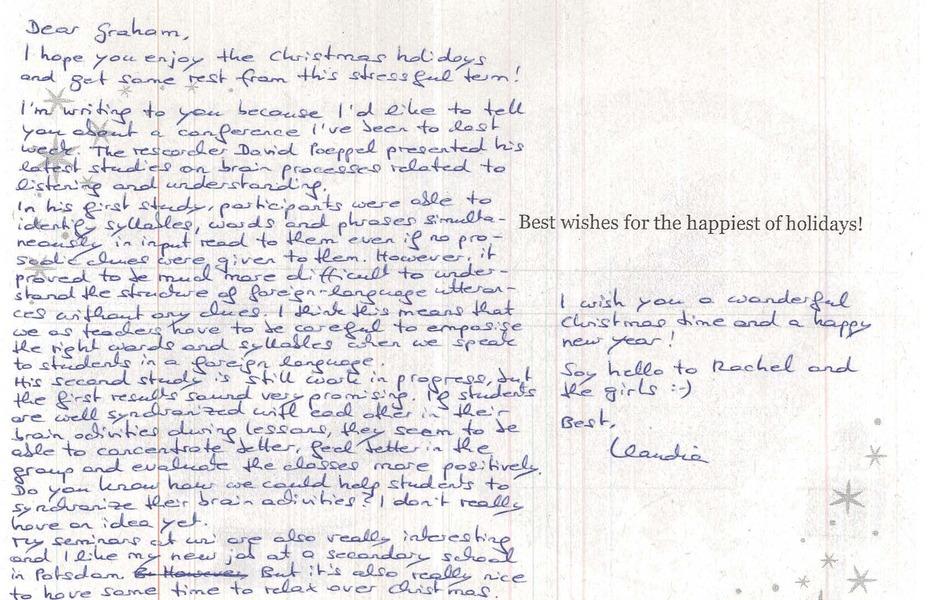 Dear Graham,
I hope you enjoy the Christmas holidays
and get some rest from this stressful term!
I'm writing to you because I'd like to tell
you about a conference I've been to last
week. The researcher David Poeppel presented his
latest studies on brain processes related to
listening and understanding.
In his first study, participants were able to
identify syllables, words and phrases simulta-
neously in input read to them even if no pro-
sodic clues were given to them. However, it
proved to be much more difficult to under-
stand the structure of foreign-language utteran-
ces without any clues. I think this means that
we as teachers have to be careful to empasise
the right words and syllables when we speak
to students in a foreign language.
His second study is still work in progress, but
the first results sound very promising. If students
are well syndronized with each other in their
brain activities during lessons, they seem to be
able to concentrate better, feel better in the
group and evaluate the classes more positively.
Do you know how we could help students to
syndronize their brain activities? I don't really
have an idea yet.
My seminars at uni are also really interesting
and I like my new job at a secondary school
in Potsdam. However, But it's also really nice
to have some time to relax over Christmas.
Best wishes for the happiest of holidays!
I wish you a wonderful
Christmas time and a happy
new year!
Say hello to Rachel and
the girls :-)
Best,
Claudia